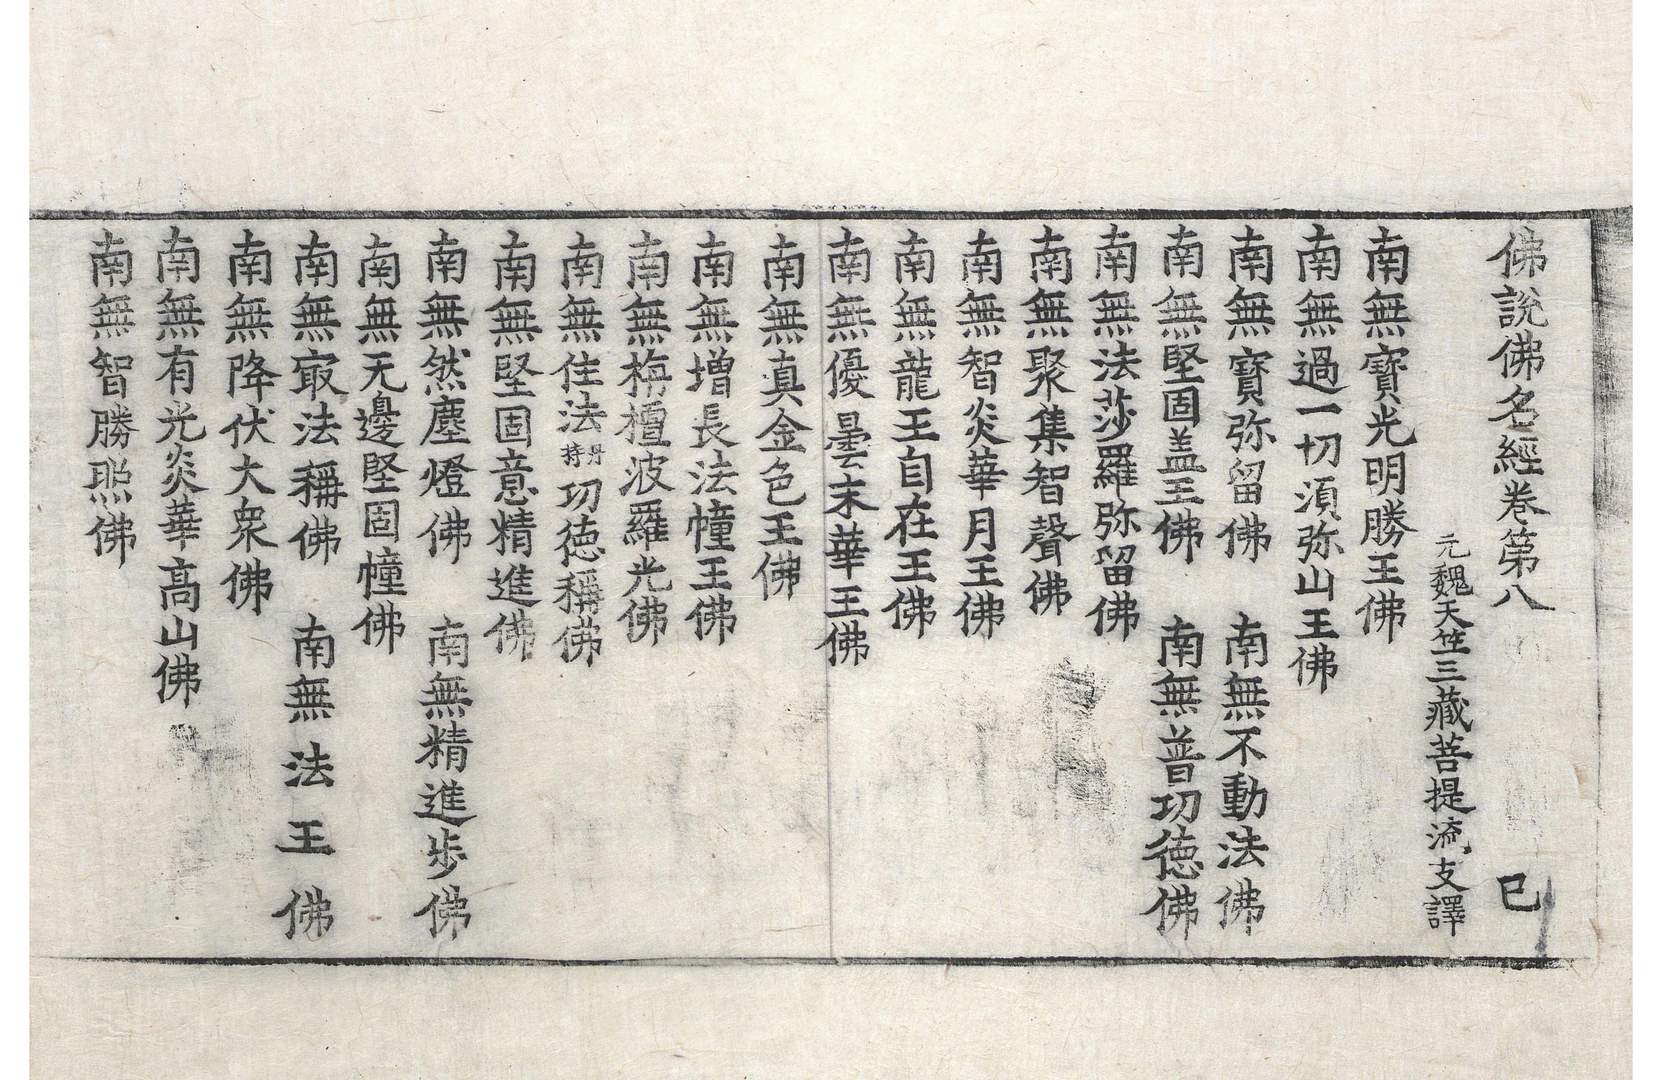 佛說佛名經卷第八 己
元魏天竺三藏菩提流支譯
南無寶光明勝王佛
南無過一切須弥山王佛
南無寶弥留佛 南無不動法佛
南無堅固盖王佛 南無普功德佛
南無法莎羅弥留佛
南無聚集智聲佛
南無智炎華月王佛
南無龍王自在王佛
南無優曇末華王佛
南無真金色王佛
南無增長法幢王佛
南無栴檀波羅光佛
南無住法丹持功德稱佛
南無堅固意精進佛
南無然塵燈佛 南無精進步佛
南無无邊堅固幢佛
南無㝡法稱佛 南無法王佛
南無降伏大衆佛
南無有光炎華高山佛
南無智勝照佛